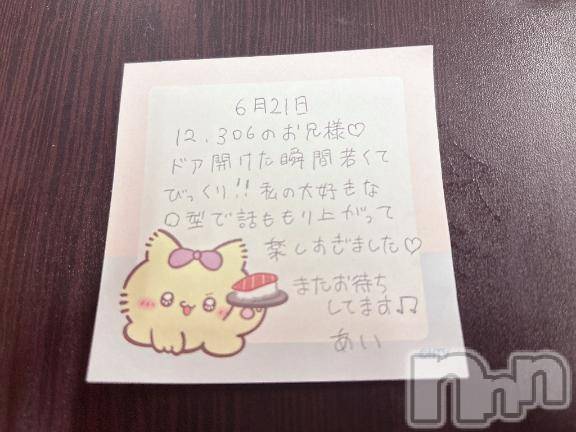 6月21日
12.306のお兄様♡
ドア開けた瞬間若くて
びっくり!!私の大好きな
O型で話ももり上がって
楽しすぎました♡
またお待ち
してます♫
あい
nnn